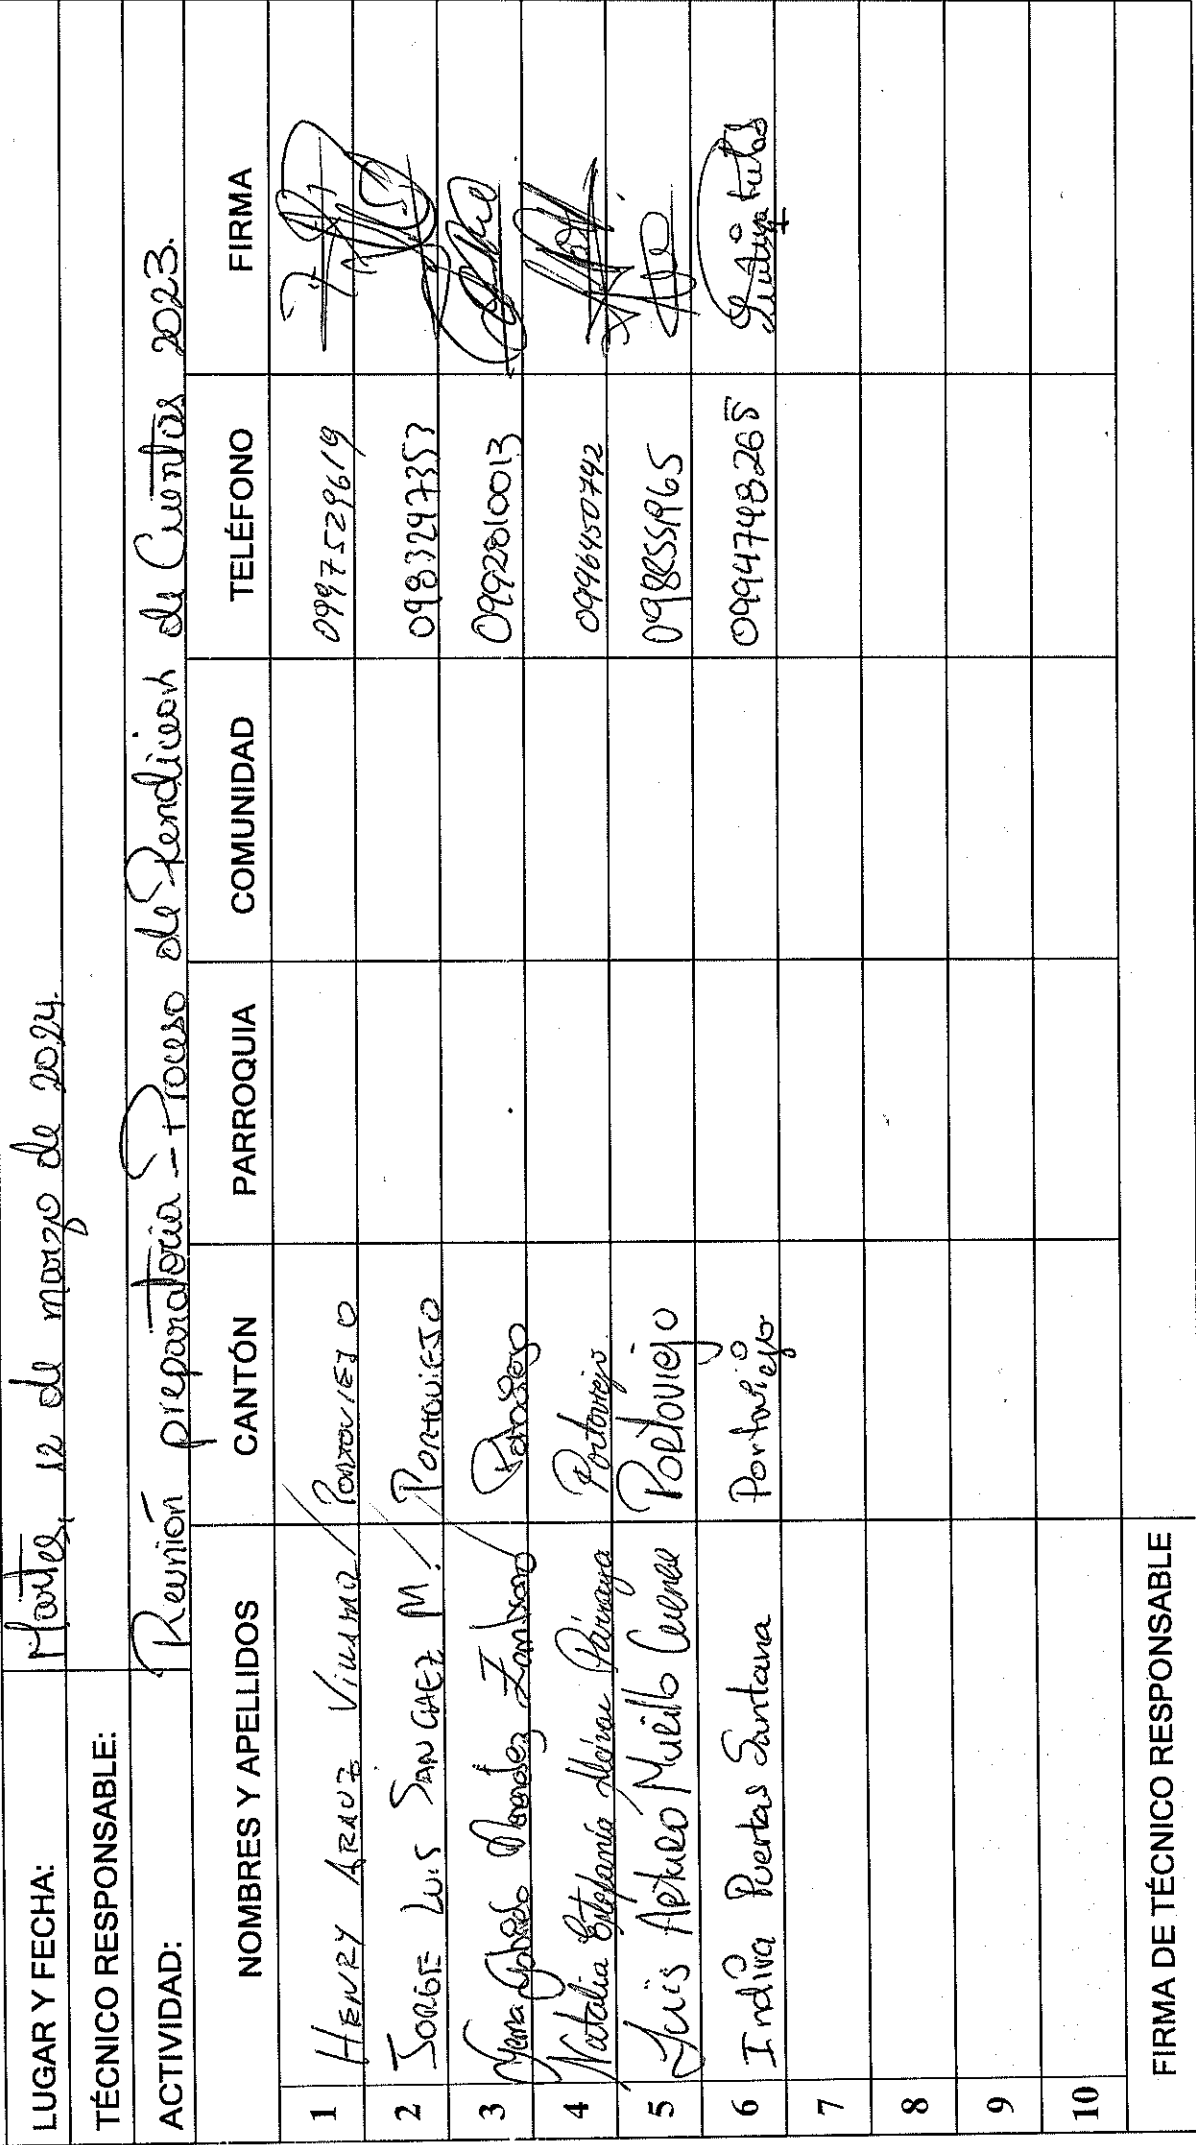 LUGAR Y FECHA: Martes, 12 de marzo de 2024.
TÉCNICO RESPONSABLE:
ACTIVIDAD: Reunión preparatoria - Proceso de Rendición de Cuentas 2023.
NOMBRES Y APELLIDOS CANTÓN PARROQUIA COMUNIDAD TELÉFONO FIRMA
1 HENRY ARAUZ PORTOVIEJO 0997529619
2 JORGE LUIS SANCHEZ M. PORTOVIEJO 0983297357
3 Maria Zambrano Portoviejo 0992810013
4 Natalia Estefanía Párraga Portoviejo 0996450742
5 Luis Arturo Murillo Cuenca PORTOVIEJO
6 Indira Puertas Santana Portoviejo 0994748265
7
8
9
10
FIRMA DE TÉCNICO RESPONSABLE